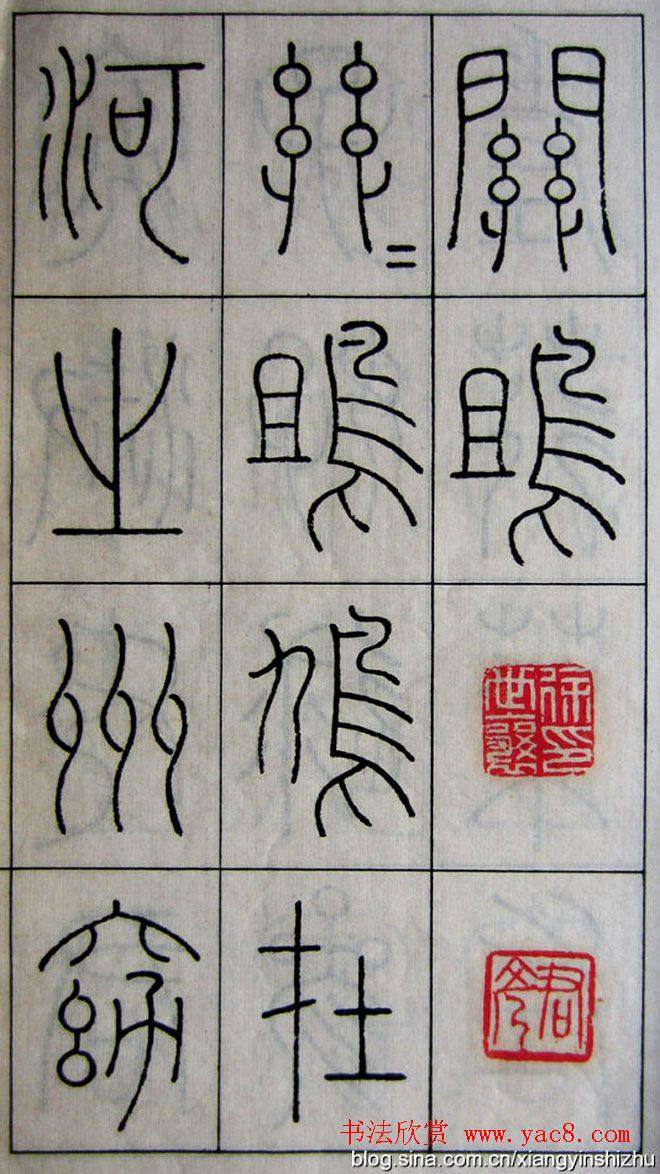 關鴡
關=鴡鳩在
河之州窈
书法欣赏 www.yac8.com
blog.sina.com.cn/xiangyinshizhu